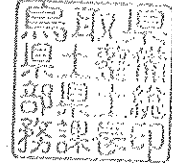 鳥取県
県土整備
部県土総
務課長印